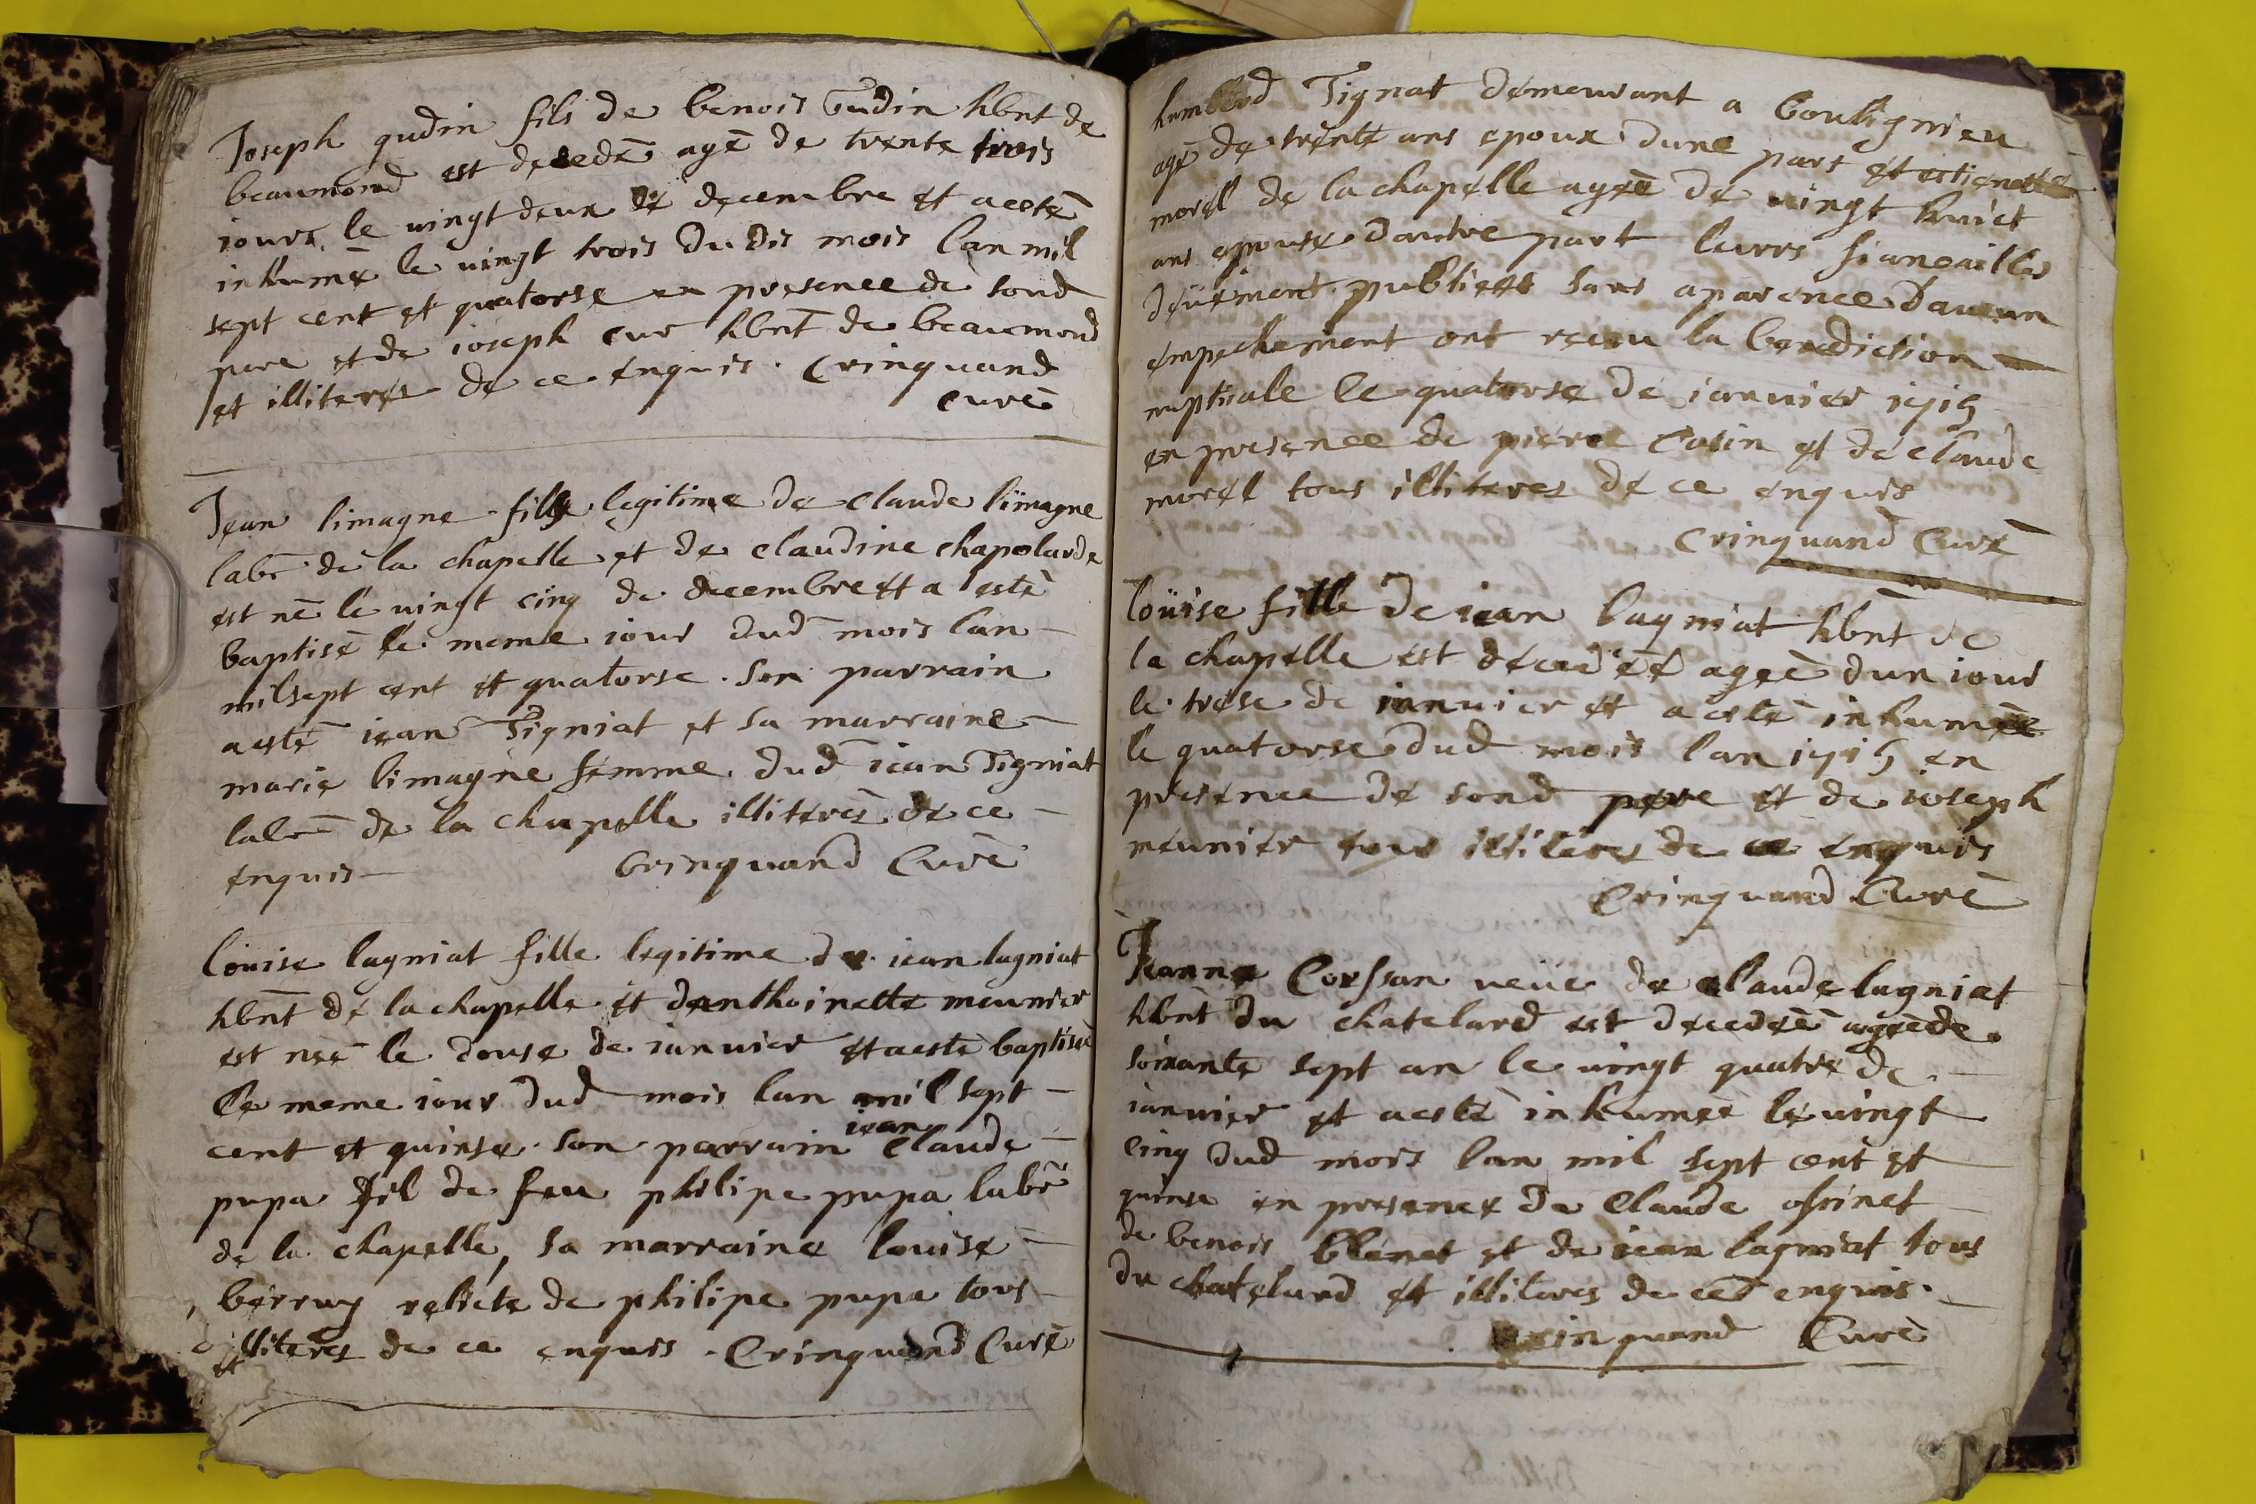 Joseph gudin fils de benois Gudin hbnt de
beaumond est decedé agé de trente trois
jours le vingt deux de decembre et a esté
inhumé le vingt trois du dis mois lan mil
sept cent et quatorse en presence de sond
pere et de ioseph cur hbnt de beaumond
et illiterés de ce enquis. Crinquand
curé
Jean limagne fils legitime de claude limagne
labr de la chapelle et de claudine chapolarde
est né le vingt cinq de decembre et a esté
baptisé le meme iour dud mois lan
mil sept cent et quatorse. son parrain
a esté iean Tigniat et sa marraine
marie limagne femme dud iean Tigniat
labr de la chapelle illiterés de ce
enquis Crinquand Curé
loüise lagniat fille legitime de iean lagniat
hbnt de la chapelle et danthoinette meunier
est née le douse de ianvier et a esté baptisée
le meme iour dud mois lan mil sept
cent et quinse. son parrain iean claude
pupa fil de feu philipe pupa labr
de la chapelle, sa marraine louise
berruy relicte de philipe pupa tous
illiteres de ce enquis. Crinquand Curé
humberd Tignat demeurant a bouligneu
agé de trente ans epoux dune part et estienette
morel de la chapelle agée de vingt huict
ans epouse dautre part leurs fiancailles
deüement publiees sans aparence daucun
empechement ont receu la benediction
nuptiale le quatorse de ianvier 1715
en presence de pierre Cusin et de claude
morel tous illiteres de ce enquis
Crinquand Curé
loüise fille de iean lagniat hbnt de
la chapelle est decedeé ageé dun iour
le trese de ianvier et a esté inhumée
le quatorse dud mois lan 1715 en
presence de sond pere et de ioseph
meunier tous illiteres de ce enquis
Crinquand Curé
Jeanne Corssan veüe de claude lagniat
hbnt du chatelard est decedeé ageé de
soixante sept an le vingt quatre de
ianvier et a esté inhumeé le vingt
cinq dud mois lan mil sept cent et
quinse en presence de Claude
de benois blanet et de iean lagniat tous
du chatelard et illiteres de ce enquis.
Crinquand Curé